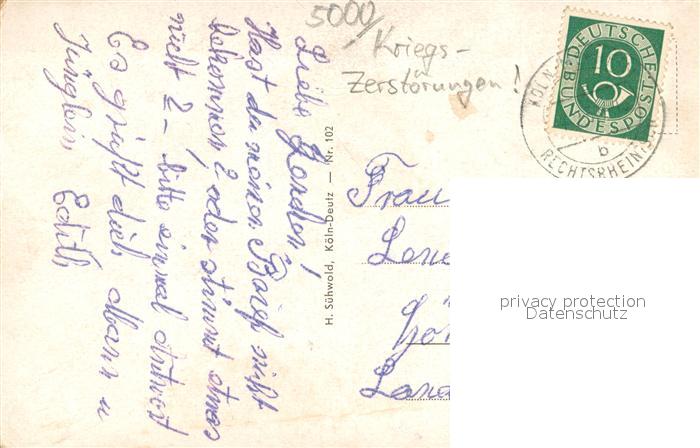 5000/
Kriegs-
Zerstörungen!
DEUTSCHE
10
BUNDESPOST
KÖLN
b
RECHTSRHEIN
Liebe
Hast du meinen Brief nicht
bekommen?, oder stimmt etwas
nicht? – bitte einmal Antwort
Es grüßt dich Mann u
Jünglein Edith
H. Sühwold, Köln-Deutz — Nr. 102
Frau
privacy protection
Datenschutz